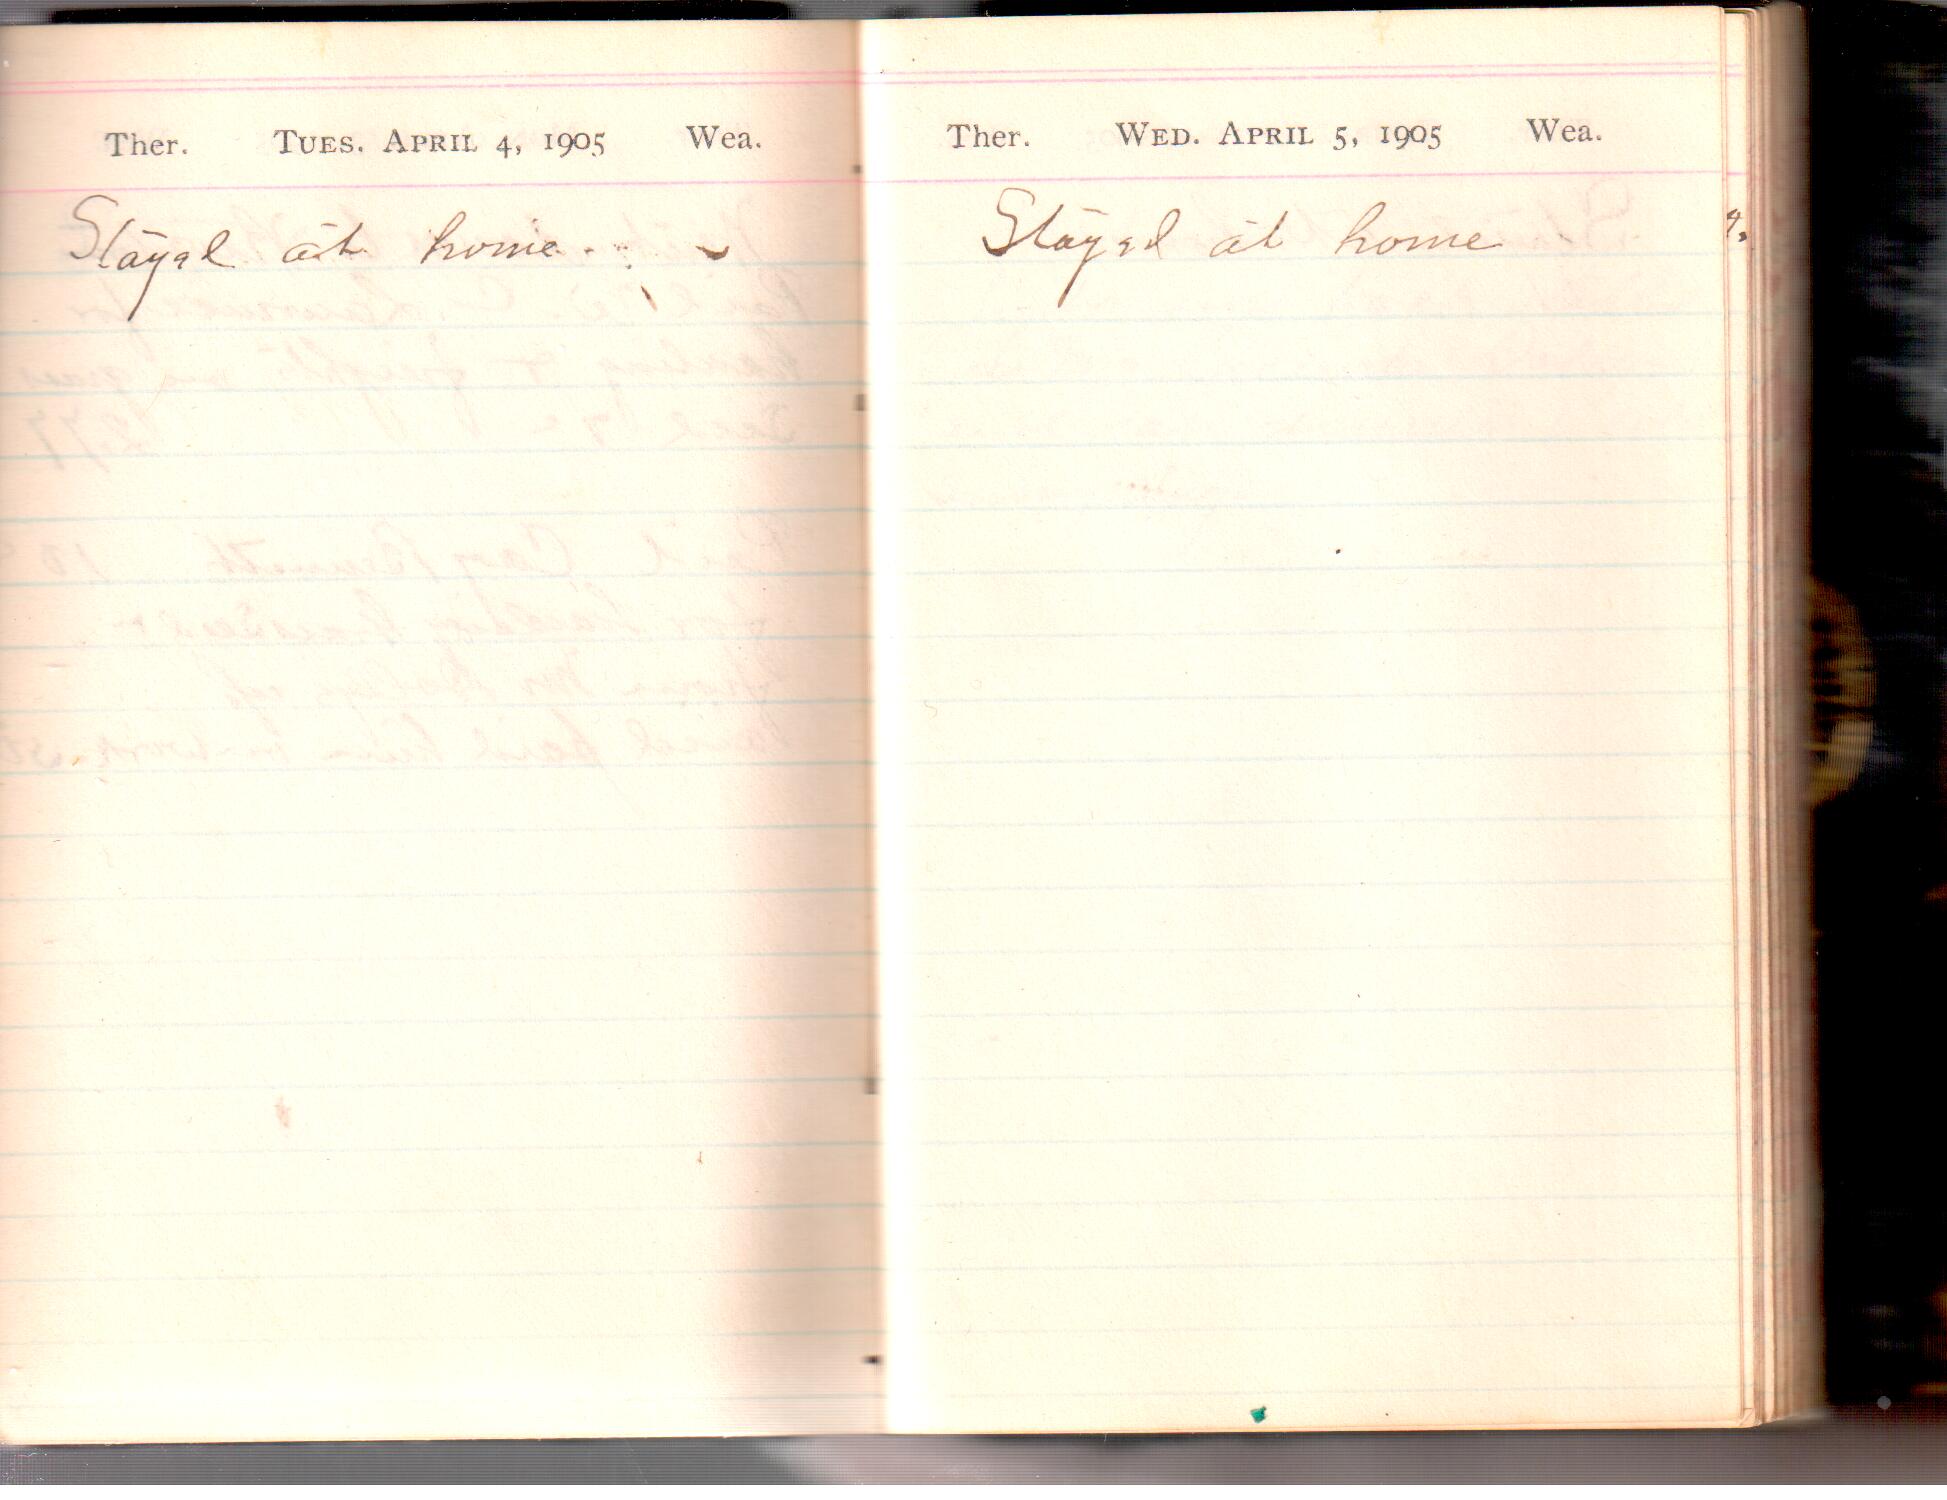 Ther. TUES. APRIL 4, 1905 Wea.
Stayed at home.
Ther. WED. APRIL 5, 1905 Wea.
Stayed at home